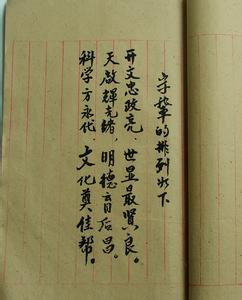 字辈的排列如下
开文忠政亮，世显最贤良。
天启辉光绪，明德育后昌。
科学方永代，文化奠佳帮。